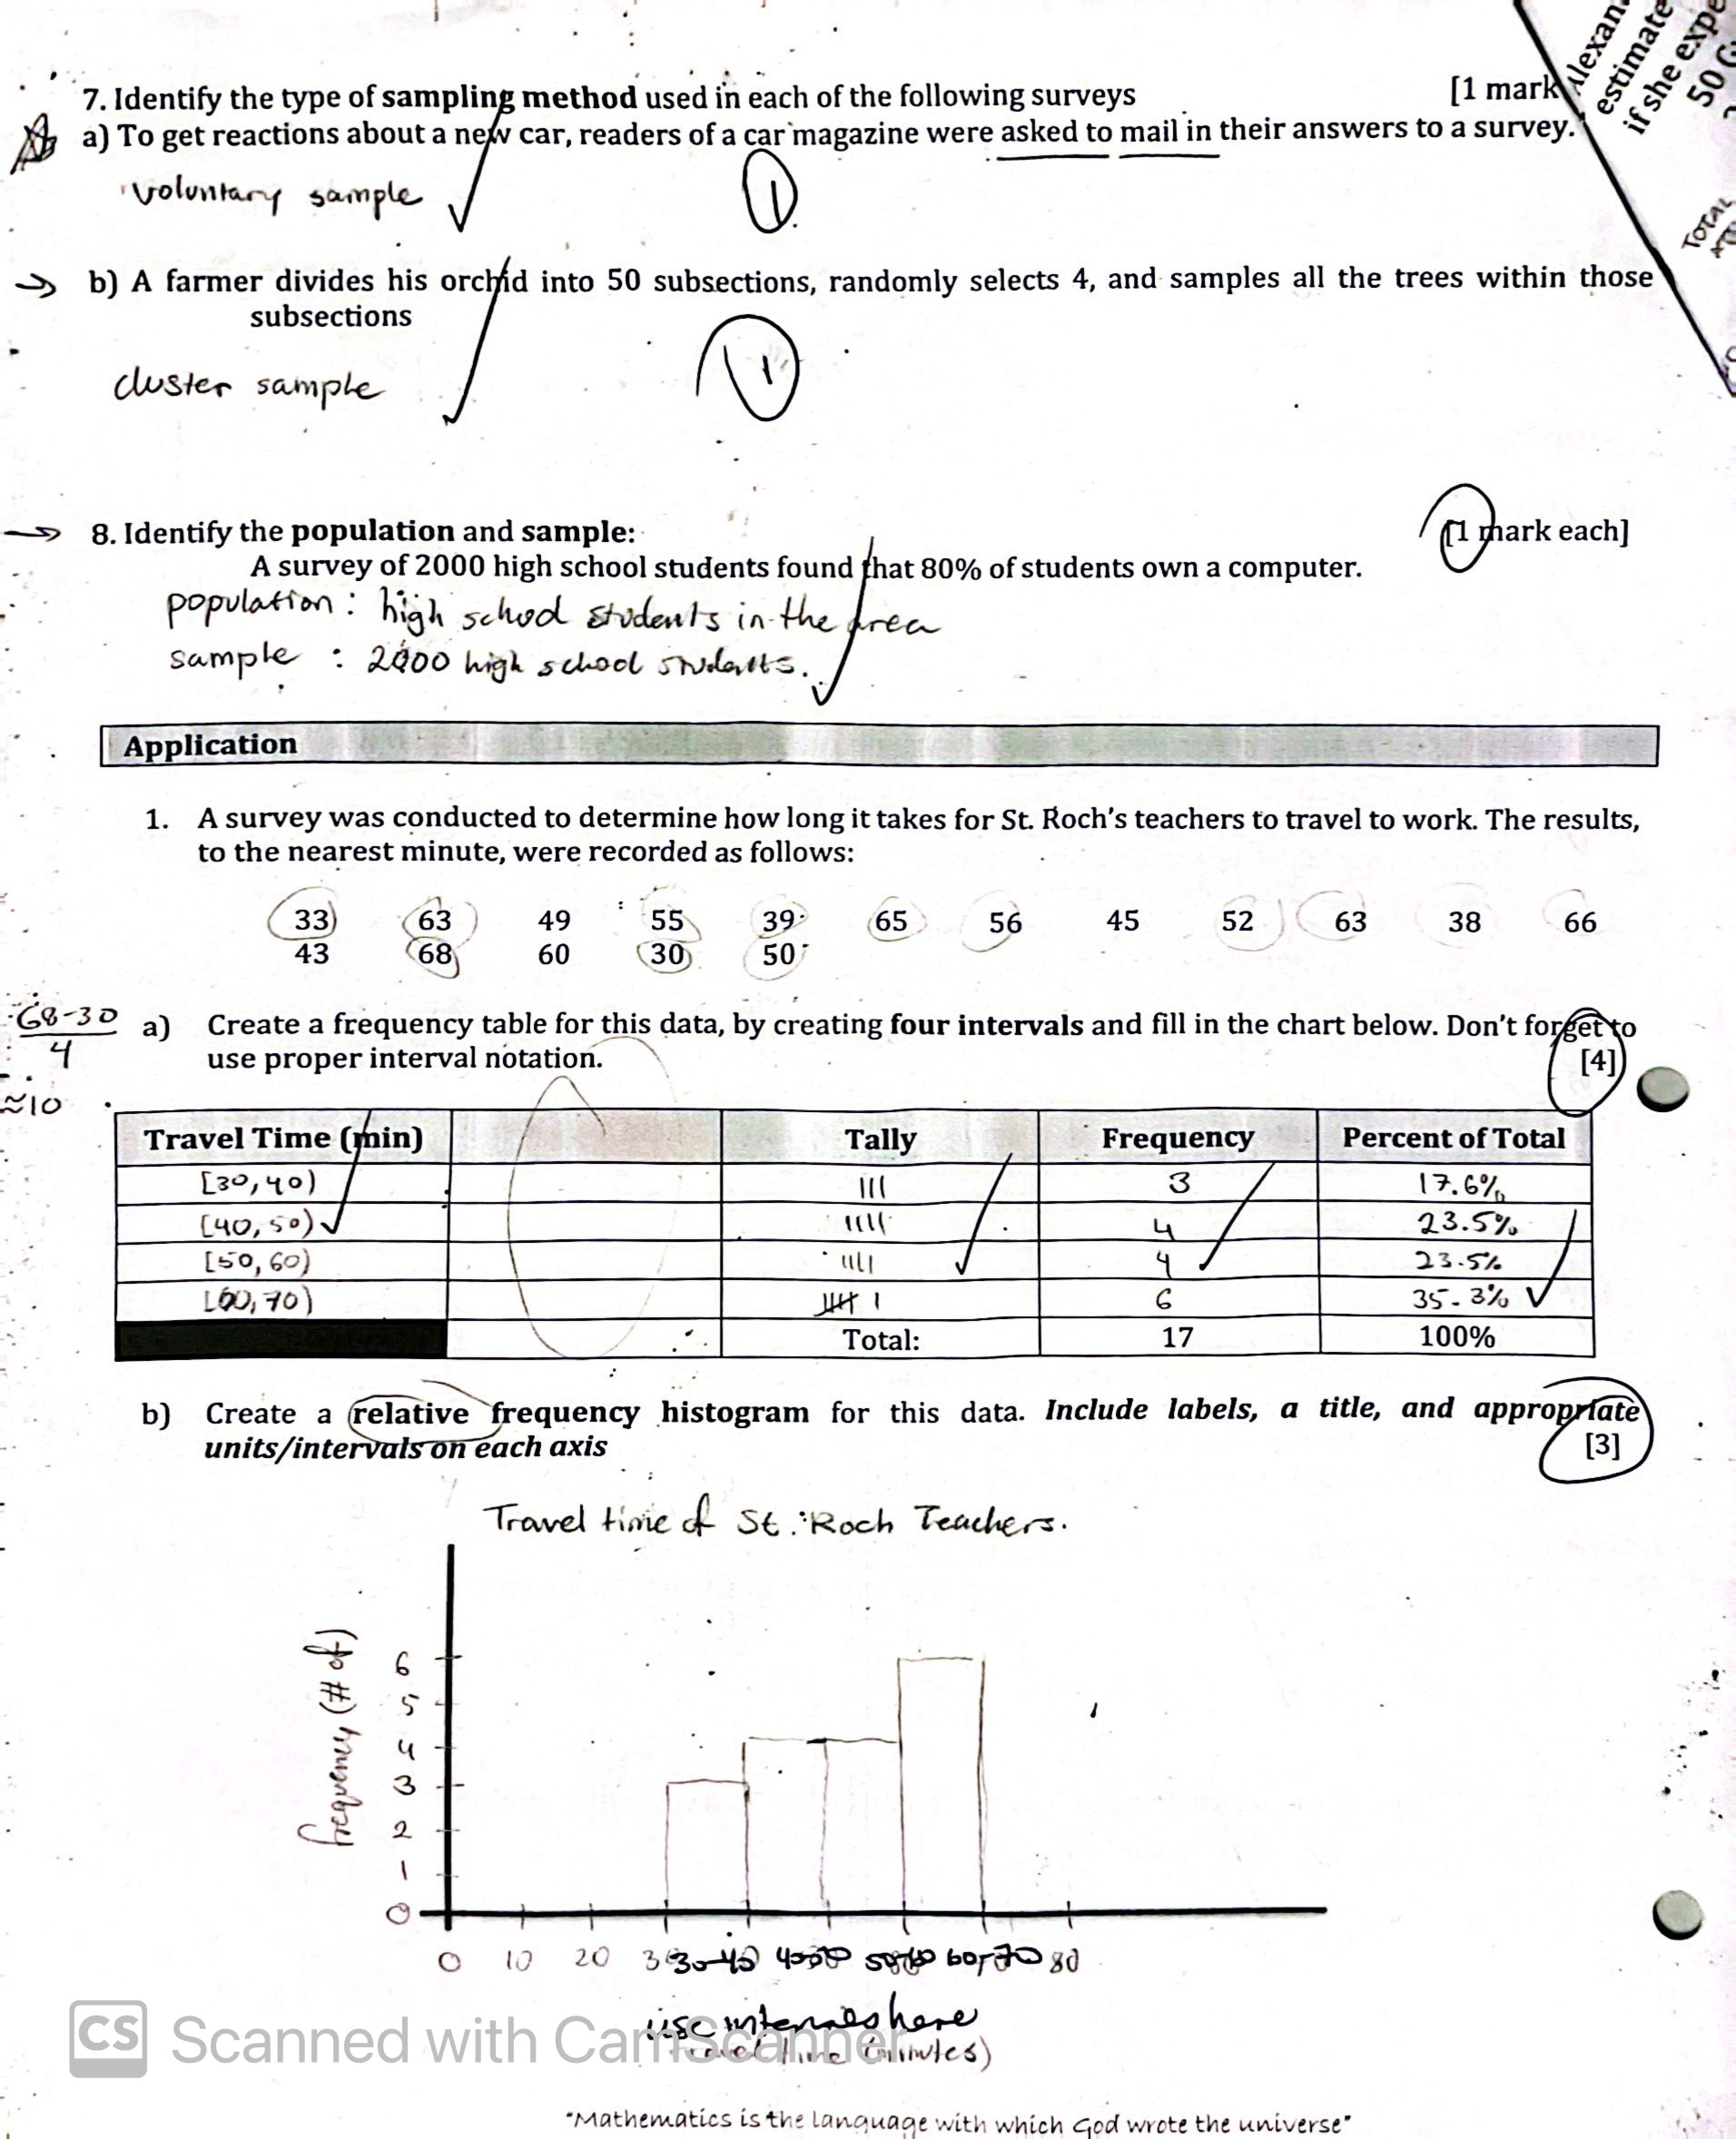 Alexan
estimate
if she expe
50 G
TOTAL
7. Identify the type of sampling method used in each of the following surveys [1 mark
a) To get reactions about a new car, readers of a car magazine were asked to mail in their answers to a survey.
voluntary sample ✓ 1
→ b) A farmer divides his orchid into 50 subsections, randomly selects 4, and samples all the trees within those
subsections
cluster sample ✓ 1
→ 8. Identify the population and sample: [1 mark each]
A survey of 2000 high school students found that 80% of students own a computer.
population : high school students in the area
sample : 2000 high school students. ✓
Application
1. A survey was conducted to determine how long it takes for St. Roch's teachers to travel to work. The results,
to the nearest minute, were recorded as follows:
33 63 49 55 39 65 56 45 52 63 38 66
43 68 60 30 50
68-30
4
≈10
a) Create a frequency table for this data, by creating four intervals and fill in the chart below. Don't forget to
use proper interval notation. [4]
Travel Time (min) Tally Frequency Percent of Total
[30,40) III 3 17.6%
[40,50) ✓ IIII 4 23.5%
[50,60) IIII ✓ 4 ✓ 23.5%
[60,70) IIII I 6 35.3% ✓
Total: 17 100%
b) Create a relative frequency histogram for this data. Include labels, a title, and appropriate
units/intervals on each axis [3]
Travel time of St. Roch Teachers.
frequency (# of)
6
5
4
3
2
1
0
0 10 20 30-40 40-50 50-60 60-70 80
use intervals here
travel time (minutes)
CS Scanned with CamScanner
"Mathematics is the language with which God wrote the universe"